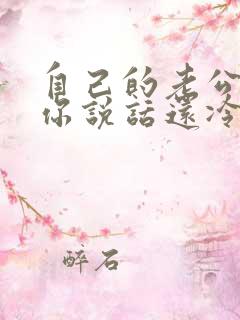 自己的老公
你說話還冷
醉石